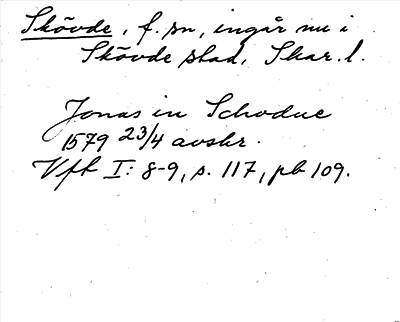 Skövde, f. sn, ingår nu i
Skövde stad, Skar. l.
Jonas in Schodue
1579 23/4 avskr.
Vft I: 8-9, s. 117, pb 109.